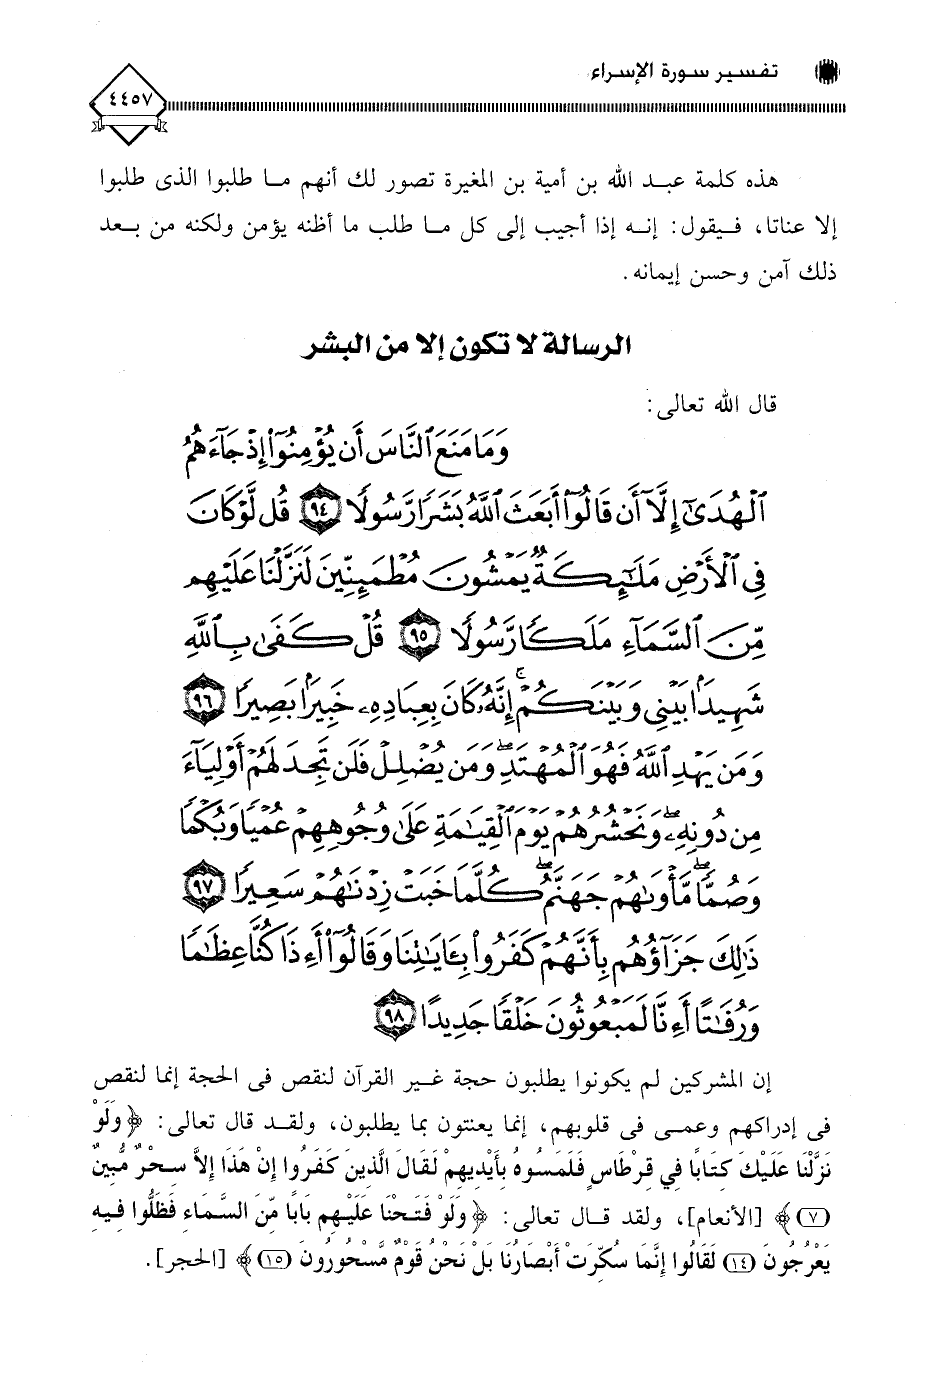 تفسير سورة الإسراء
٤٤٥٧
هذه كلمة عبد الله بن أمية بن المغيرة تصور لك أنهم ما طلبوا الذى طلبوا
إلا عناتا، فيقول: إنه إذا أجيب إلى كل ما طلب ما أظنه يؤمن ولكنه من بعد
ذلك آمن وحسن إيمانه.
الرسالة لا تكون إلا من البشر
قال الله تعالى:
وَمَا مَنَعَ ٱلنَّاسَ أَن يُؤْمِنُوٓا۟ إِذْ جَآءَهُمُ
ٱلْهُدَىٰٓ إِلَّآ أَن قَالُوٓا۟ أَبَعَثَ ٱللَّهُ بَشَرًا رَّسُولًا ٩٤ قُل لَّوْ كَانَ
فِى ٱلْأَرْضِ مَلَٰٓئِكَةٌ يَمْشُونَ مُطْمَئِنِّينَ لَنَزَّلْنَا عَلَيْهِم
مِّنَ ٱلسَّمَآءِ مَلَكًا رَّسُولًا ٩٥ قُلْ كَفَىٰ بِٱللَّهِ
شَهِيدًۢا بَيْنِى وَبَيْنَكُمْ ۚ إِنَّهُۥ كَانَ بِعِبَادِهِۦ خَبِيرًۢا بَصِيرًا ٩٦
وَمَن يَهْدِ ٱللَّهُ فَهُوَ ٱلْمُهْتَدِ ۖ وَمَن يُضْلِلْ فَلَن تَجِدَ لَهُمْ أَوْلِيَآءَ
مِن دُونِهِۦ ۖ وَنَحْشُرُهُمْ يَوْمَ ٱلْقِيَٰمَةِ عَلَىٰ وُجُوهِهِمْ عُمْيًا وَبُكْمًا
وَصُمًّا ۖ مَّأْوَىٰهُمْ جَهَنَّمُ ۖ كُلَّمَا خَبَتْ زِدْنَٰهُمْ سَعِيرًا ٩٧
ذَٰلِكَ جَزَآؤُهُم بِأَنَّهُمْ كَفَرُوا۟ بِـَٔايَٰتِنَا وَقَالُوٓا۟ أَءِذَا كُنَّا عِظَٰمًا
وَرُفَٰتًا أَءِنَّا لَمَبْعُوثُونَ خَلْقًا جَدِيدًا ٩٨
إن المشركين لم يكونوا يطلبون حجة غير القرآن لنقص فى الحجة إنما لنقص
فى إدراكهم وعمى فى قلوبهم، إنما يعنتون بما يطلبون، ولقد قال تعالى: ﴿وَلَوْ
نَزَّلْنَا عَلَيْكَ كِتَابًا فِي قِرْطَاسٍ فَلَمَسُوهُ بِأَيْدِيهِمْ لَقَالَ الَّذِينَ كَفَرُوا إِنْ هَذَا إِلاَّ سِحْرٌ مُّبِينٌ
(٧)﴾ [الأنعام]، ولقد قال تعالى: ﴿وَلَوْ فَتَحْنَا عَلَيْهِم بَابًا مِّنَ السَّمَاءِ فَظَلُّوا فِيهِ
يَعْرُجُونَ (١٤) لَقَالُوا إِنَّمَا سُكِّرَتْ أَبْصَارُنَا بَلْ نَحْنُ قَوْمٌ مَّسْحُورُونَ (١٥)﴾ [الحجر].